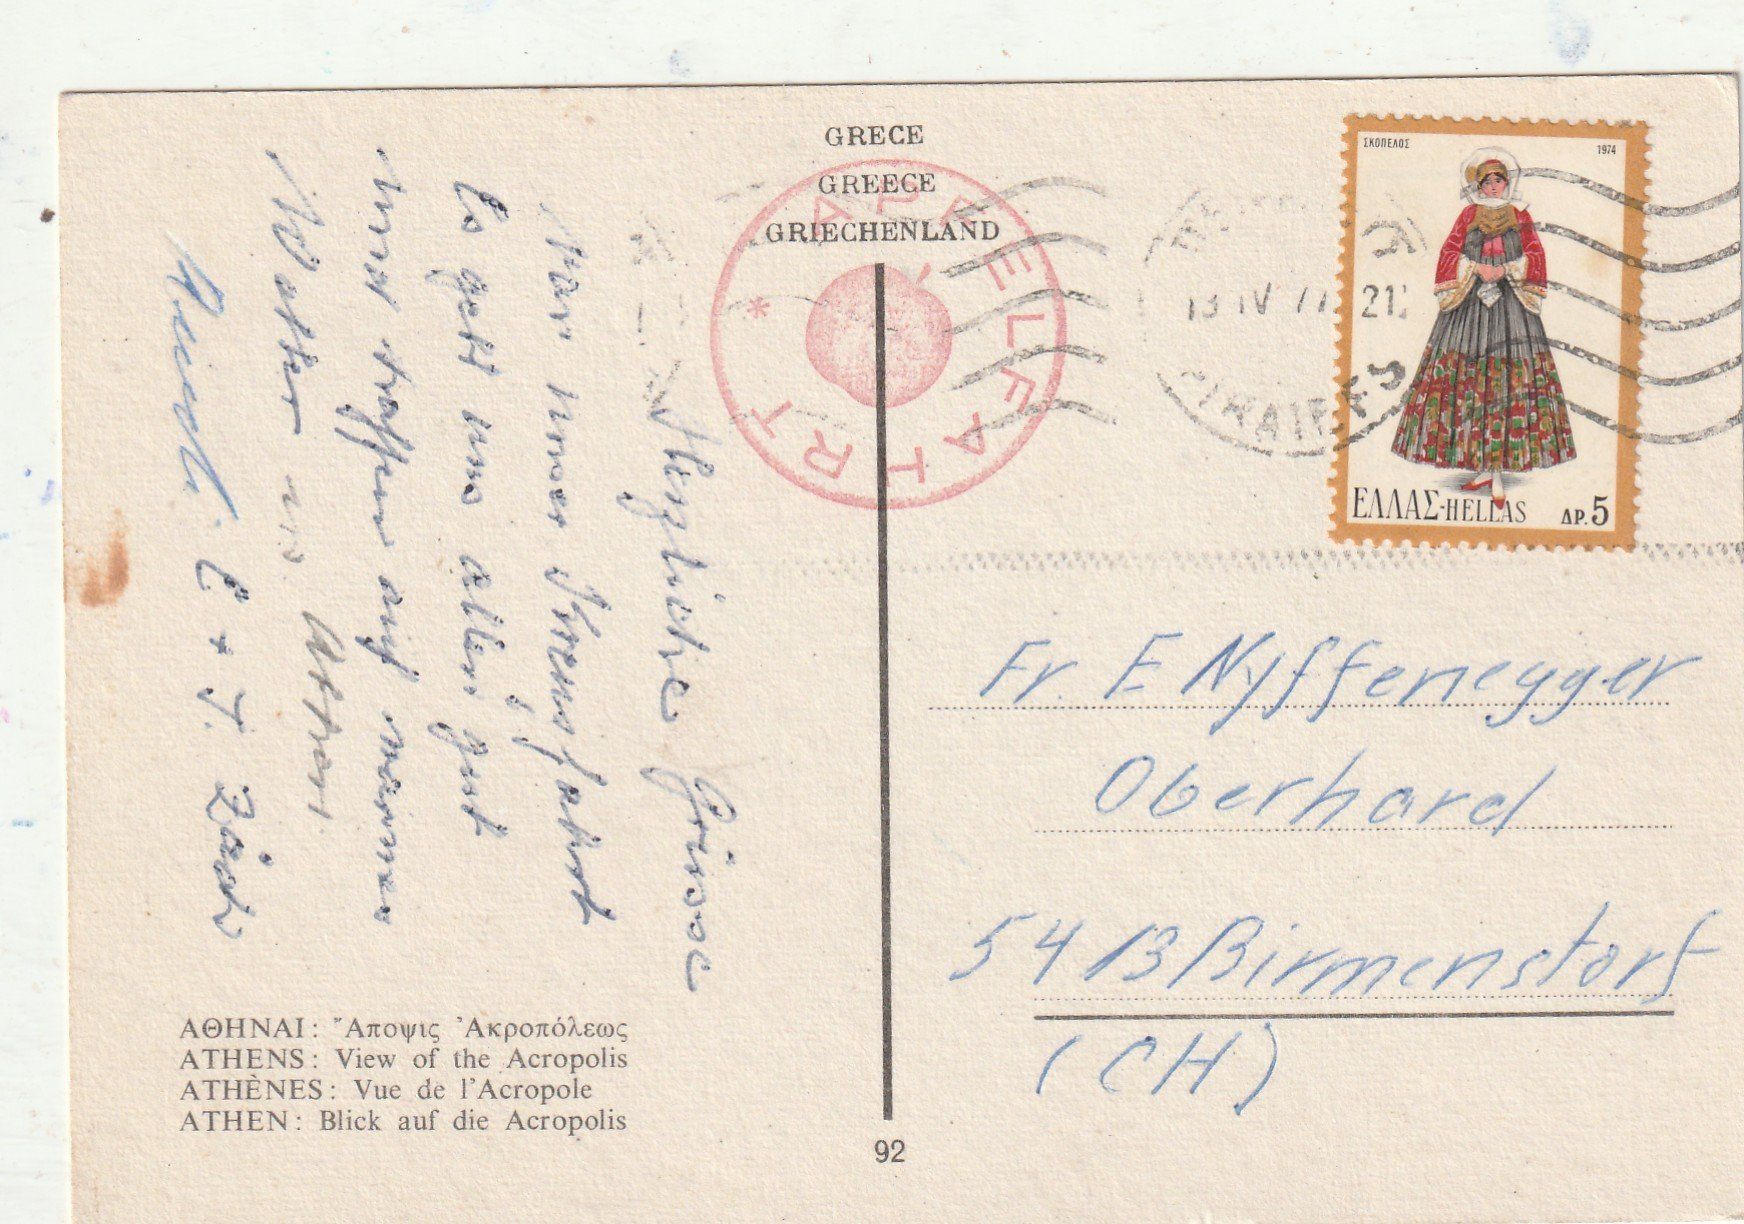 GRECE
GREECE
GRIECHENLAND
* APFELFAHRT
ΣΚΟΠΕΛΟΣ 1974
13 IV 77 21
ΕΛΛΑΣ-HELLAS ΔΡ. 5
Herzliche Grüsse
von unser
Es geht uns allen gut
und treffen auf warmes
Wetter in Athen.
E + J.
Fr. E Nyffenegger
Oberhard
5413 Birmenstorf
(CH)
ΑΘΗΝΑΙ: Ἄποψις Ἀκροπόλεως
ATHENS: View of the Acropolis
ATHÈNES: Vue de l'Acropole
ATHEN: Blick auf die Acropolis
92